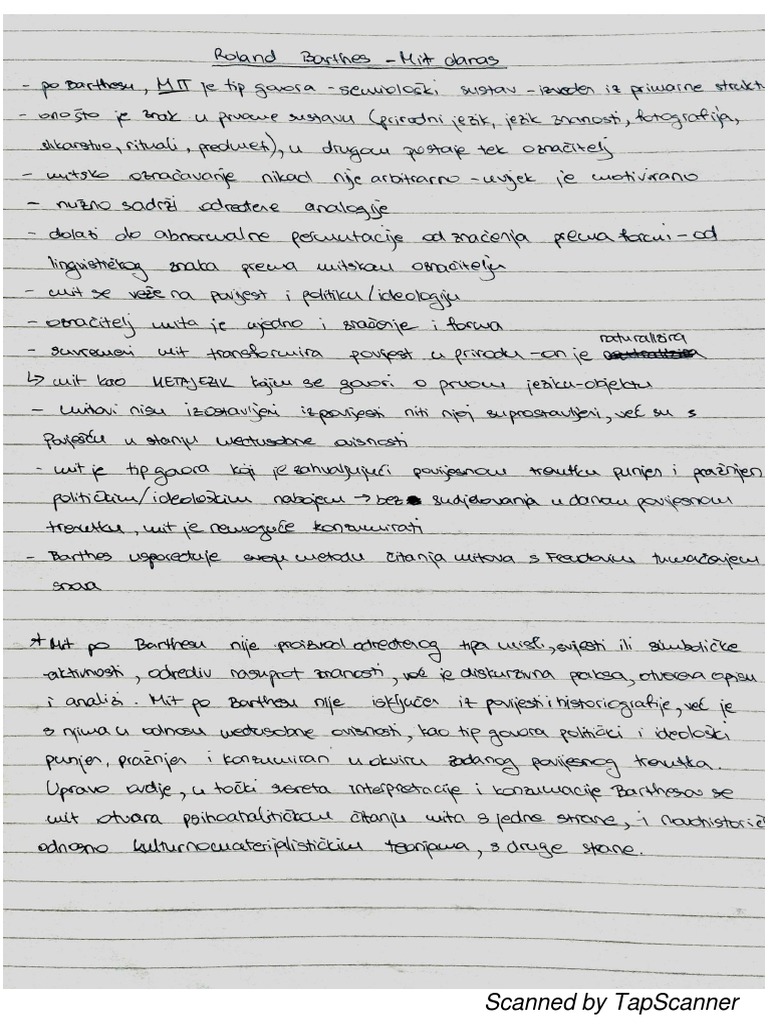 Roland Barthes - Mit danas
- po Barthesu, MIT je tip govora - semiološki sustav - izveden iz primarne strukt
- ono što je znak u prvome sustavu (prirodni jezik, jezik znanosti, fotografija,
slikarstvo, rituali, predmeti), u drugom postaje tek označitelj
- mitsko označavanje nikad nije arbitrarno - uvijek je motivirano
- nužno sadrži određene analogije
- dolazi do abnormalne permutacije od značenja prema formi - od
lingvističkog znaka prema mitskom označitelju
- mit se veže na povijest i politiku/ideologiju
- označitelj mita je ujedno i značenje i forma
naturalizira
- suvremeni mit transformira povijest u prirodu - on je
↳ mit kao METAJEZIK kojim se govori o prvom jeziku-objektu
- mitovi nisu izostavljeni iz povijesti niti njoj suprostavljeni, već su s
poviješću u stanju međusobne ovisnosti
- mit je tip govora koji je zahvaljujući povijesnom trenutku punjen i pražnjen
političkim/ideološkim nabojem → bez sudjelovanja u danom povijesnom
trenutku, mit je nemoguće konzumirati
- Barthes uspoređuje svoju metodu čitanja mitova s Freudovim tumačenjem
snova
* Mit po Barthesu nije proizvod određenog tipa misli, svijesti ili simboličke
aktivnosti, odrediv nasuprot znanosti, već je diskurzivna praksa, otvorena opisu
i analizi. Mit po Barthesu nije isključen iz povijesti i historiografije, već je
s njima u odnosu međusobne ovisnosti, kao tip govora politički i ideološki
punjen, pražnjen i konzumiran u okviru zadanog povijesnog trenutka.
Upravo ovdje, u točki susreta interpretacije i konzumacije Barthesov se
mit otvara psihoanalitičkom čitanju mita s jedne strane, i novohistorič
odnosno kulturnomaterijalističkim teorijama, s druge strane.
Scanned by TapScanner